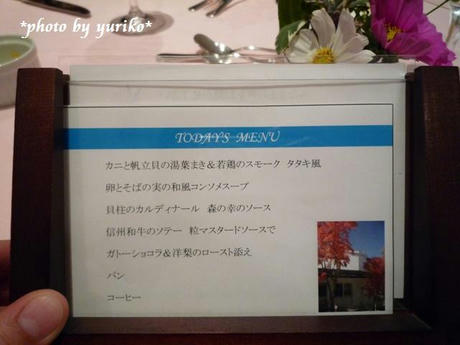 *photo by yuriko*
TODAY'S MENU
カニと帆立貝の湯葉まき&若鶏のスモーク タタキ風
卵とそばの実の和風コンソメスープ
貝柱のカルディナール 森の幸のソース
信州和牛のソテー 粒マスタードソースで
ガトーショコラ&洋梨のロースト添え
パン
コーヒー